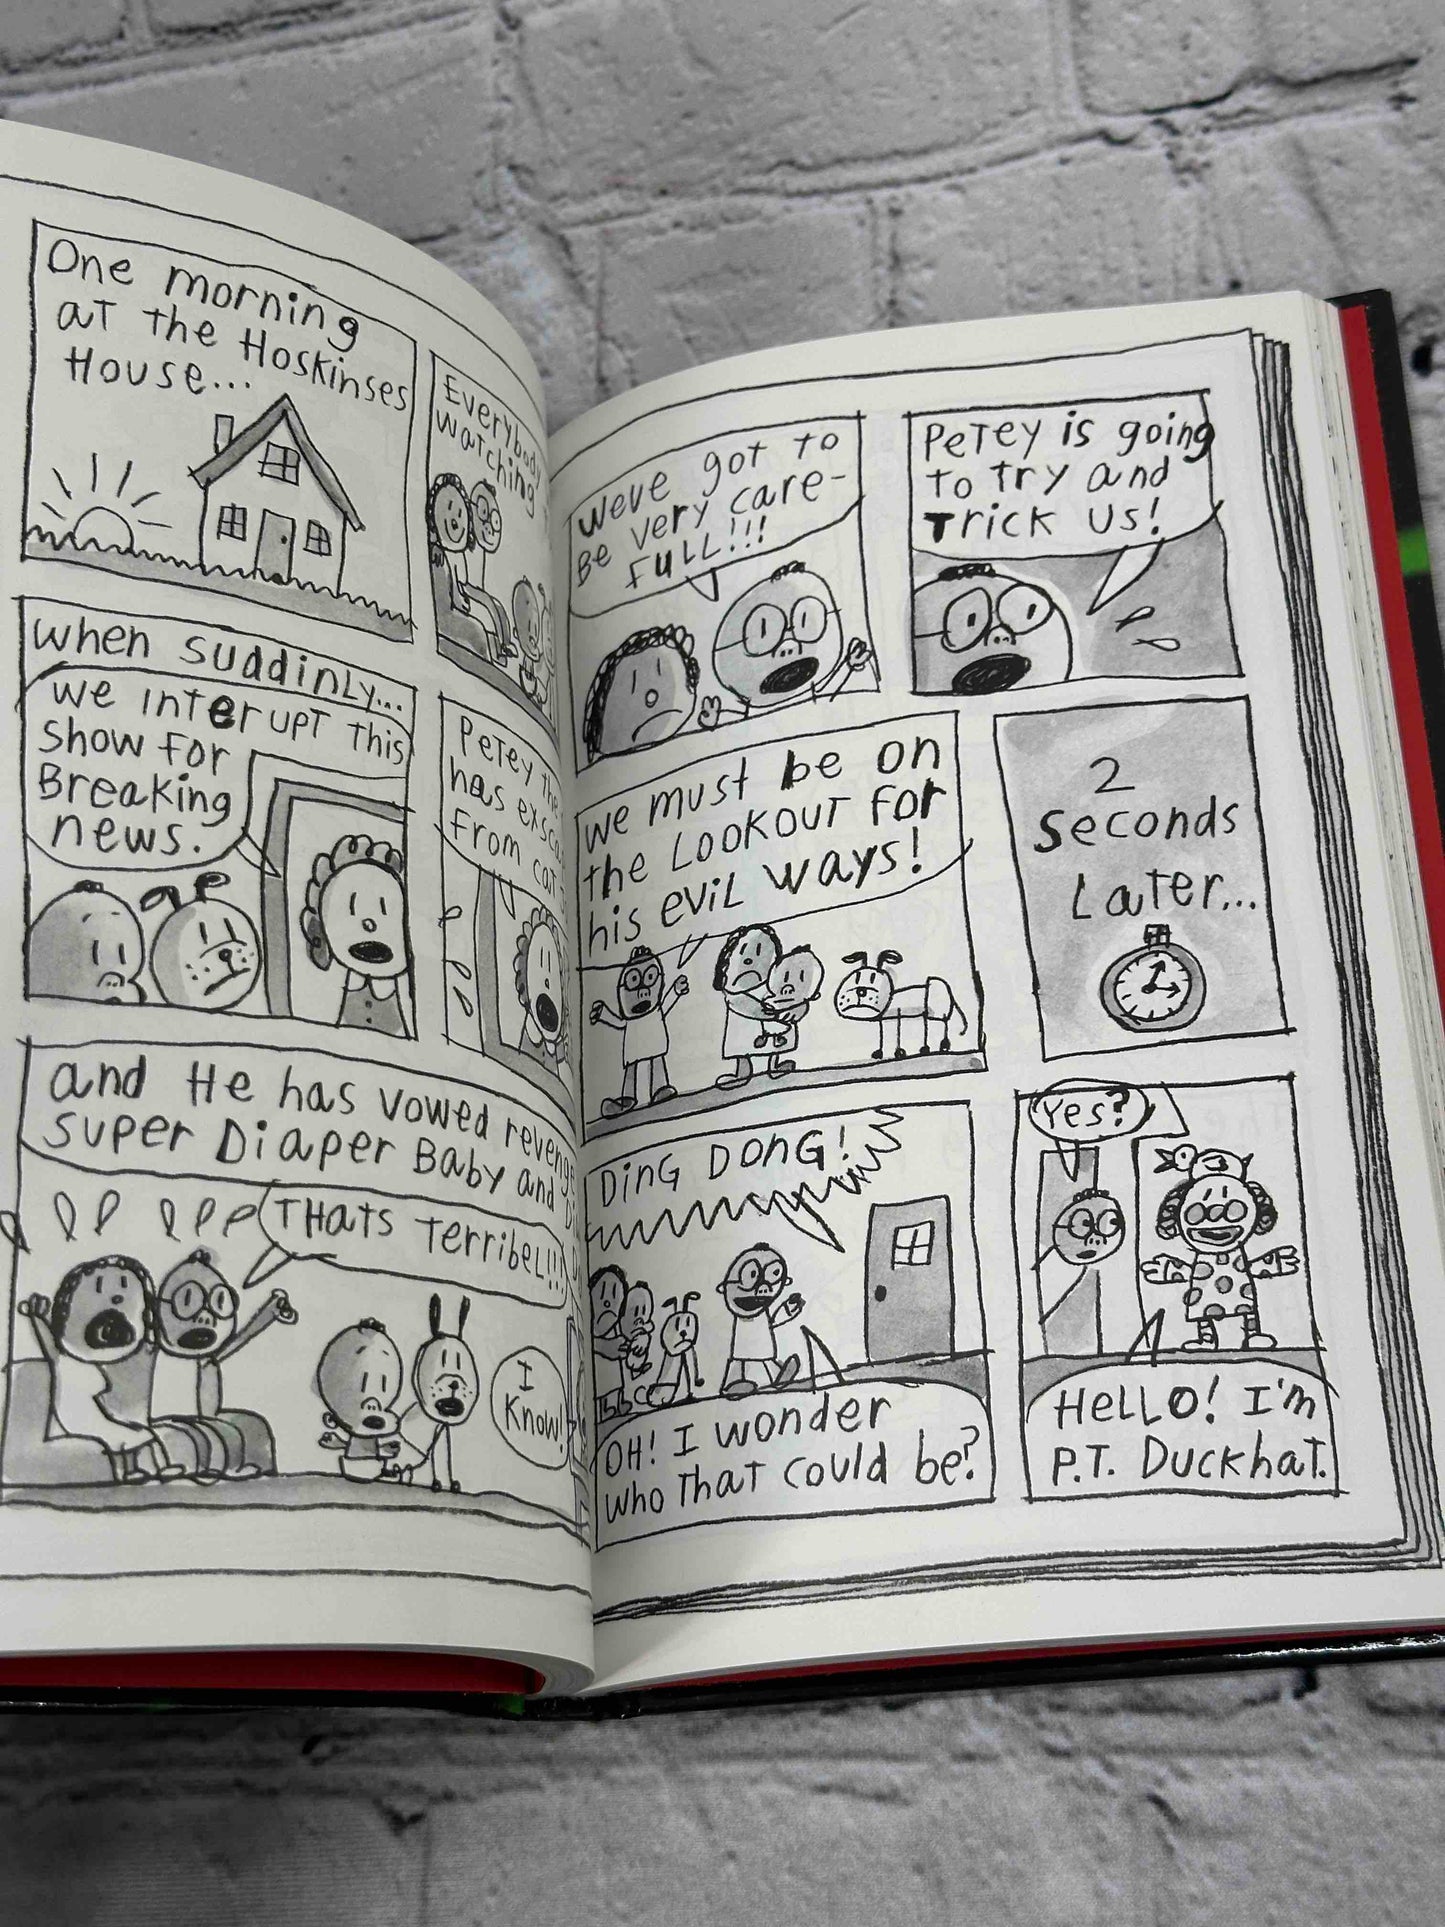 One morning
at the Hoskinses
House...
Everybody
watching
when suddinly...
we interupt this
show for
Breaking
news.
Petey the
has
from cat
and He has vowed revenge
super Diaper Baby and
THats terribel!!!
I
Know!
weve got to
Be very care-
full!!!
Petey is going
to try and
trick us!
we must be on
the Lookout for
his evil ways!
2
seconds
Later...
Ding Dong!
OH! I wonder
who that could be?
Yes?
Hello! I'm
P.T. Duckhat.